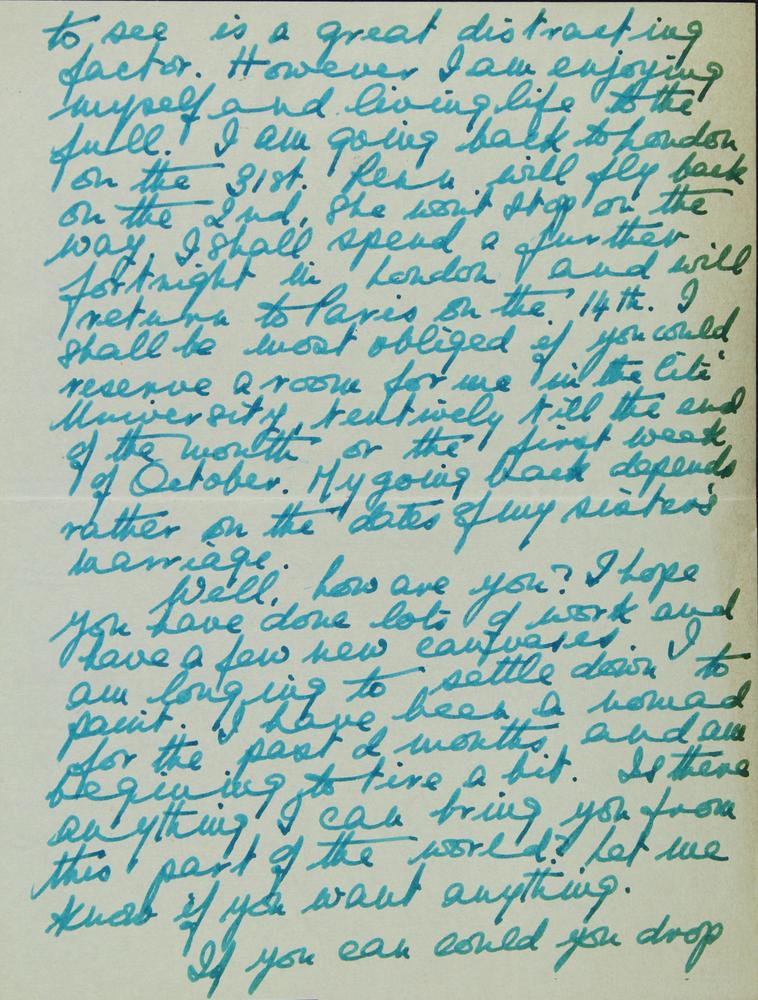 to see is a great distracting
factor. However I am enjoying
myself and living life to the
full. I am going back to London
on the 31st. Renu will fly back
on the 2nd, she wont stop on the
way, I shall spend a further
fortnight in London and will
return to Paris on the 14th. I
shall be most obliged if you could
reserve a room for me in the Cité
University, tentively till the end
of the month or the first week
of October. My going back depends
rather on the dates of my sister's
marriage.
Well, how are you? I hope
you have done lots of work and
have a few new canvases. I
am longing to settle down to
paint. I have been a nomad
for the past 2 months and am
begining to tire a bit. Is there
anything I can bring you from
this part of the world? Let me
know if you want anything.
If you can could you drop